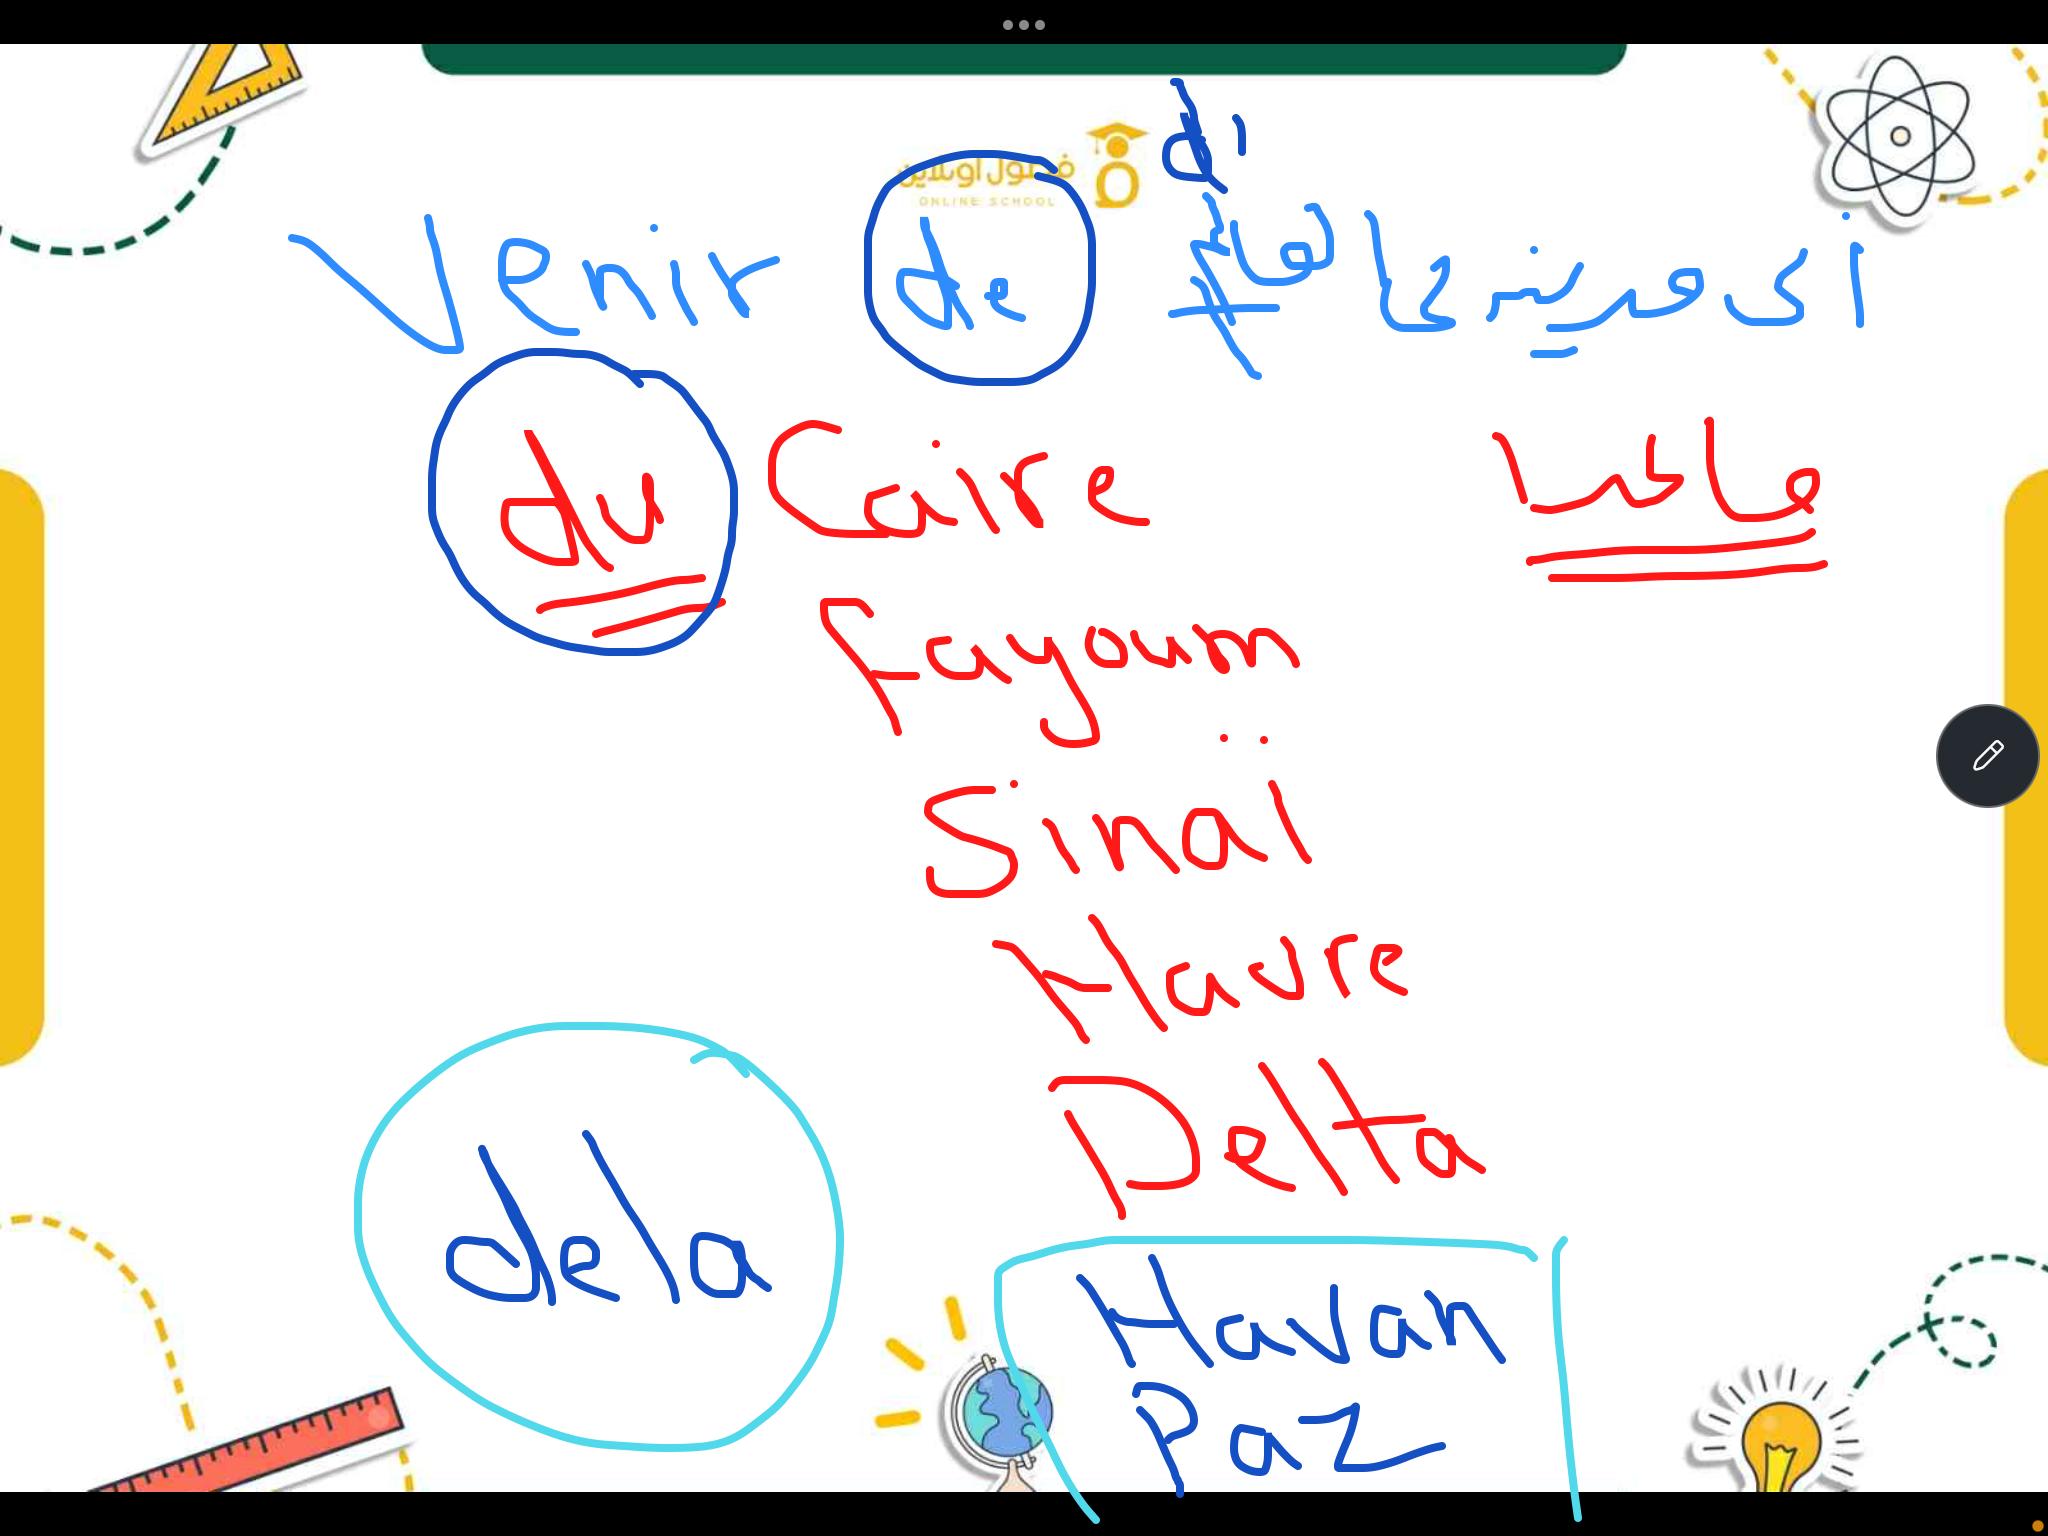 فصول اونلاين
ONLINE SCHOOL
d'
Venir de أى مدينه فى العالم
du Caire ماعدا
Fayoum
Sinaï
Havre
Delta
dela
Havan
Paz